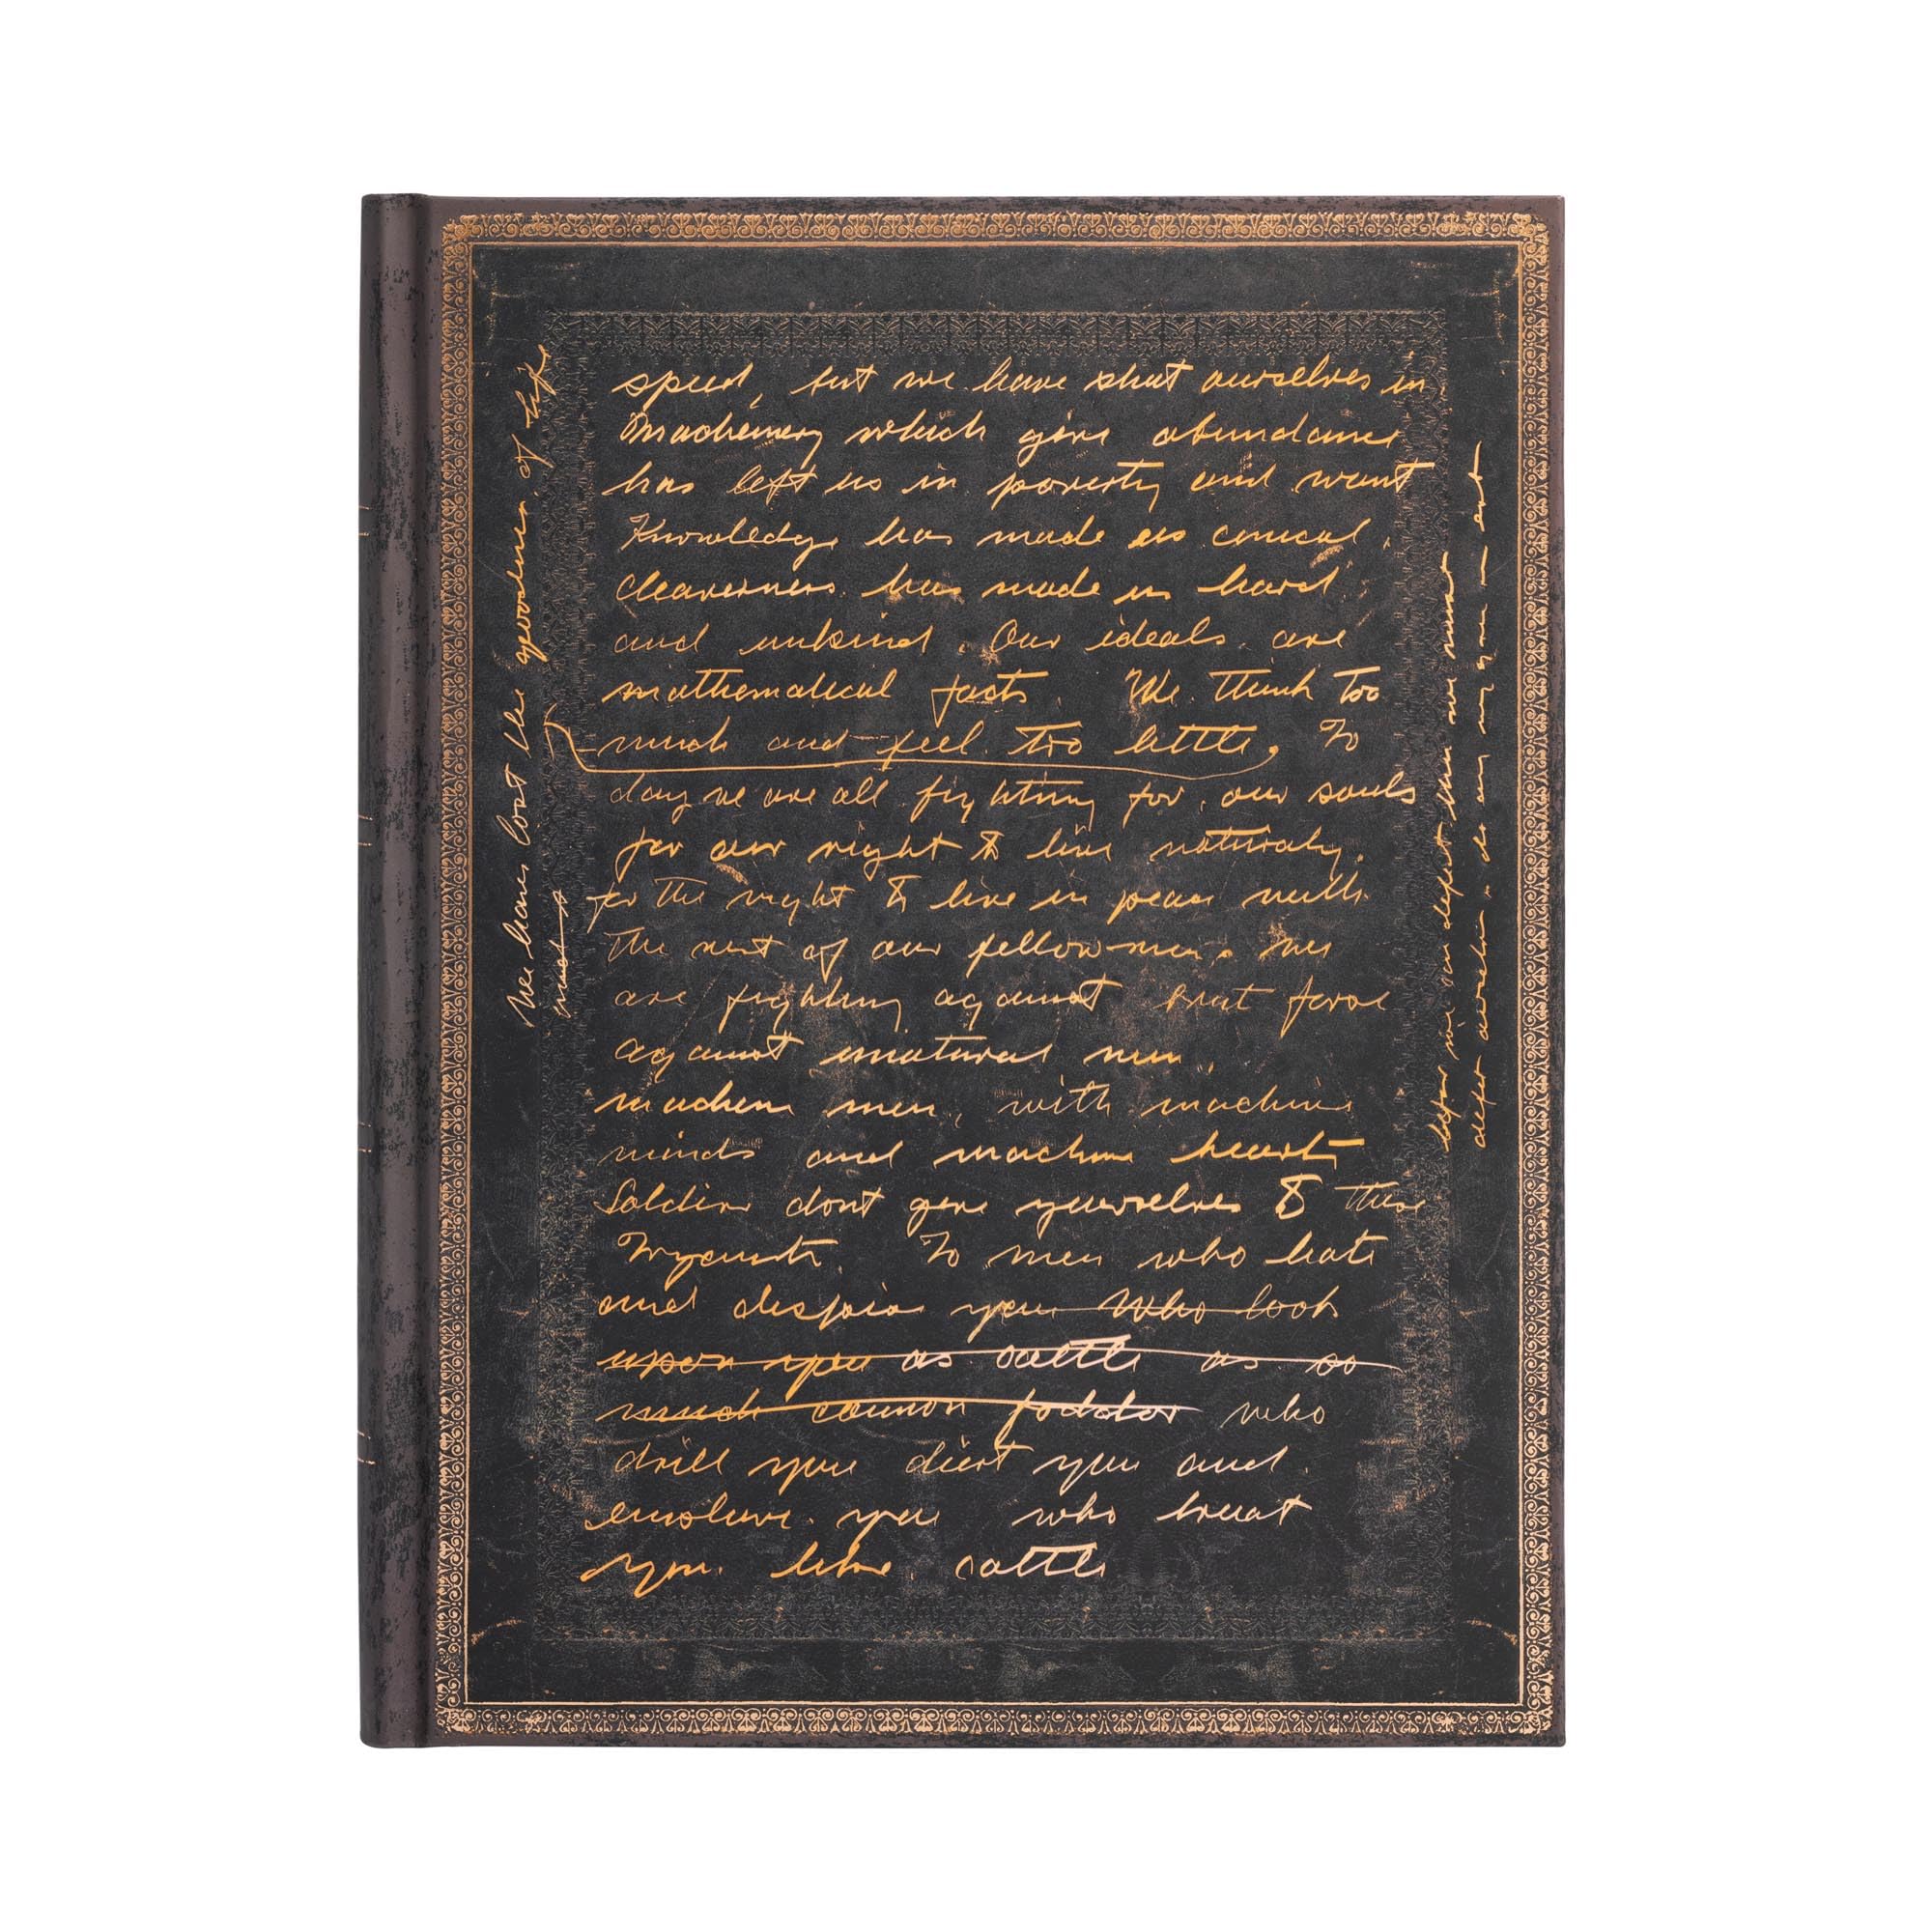 speed, but we have shut ourselves in
Machinery which give abundance
has left us in poverty and want
Knowledge has made us conical,
cleaverness has made us hard
and unkind. Our ideals are
mathematical facts. We think too
much and feel too little. To
day we are all fighting for our souls
for our right to live naturaly.
for the right to live in peace with
the rest of our fellow men. We
are fighting against brut force
against unatural men.
machine men, with machine
minds and machine hearts
Soldiers dont give yourselves to these
To men who hate
and despise you who look
upon you as cattle as so
much cannon foddor who
drill you diert you and
enslave you who treat
you like cattle
We have lost the goodness of life
before we can defeat them we must
defeat